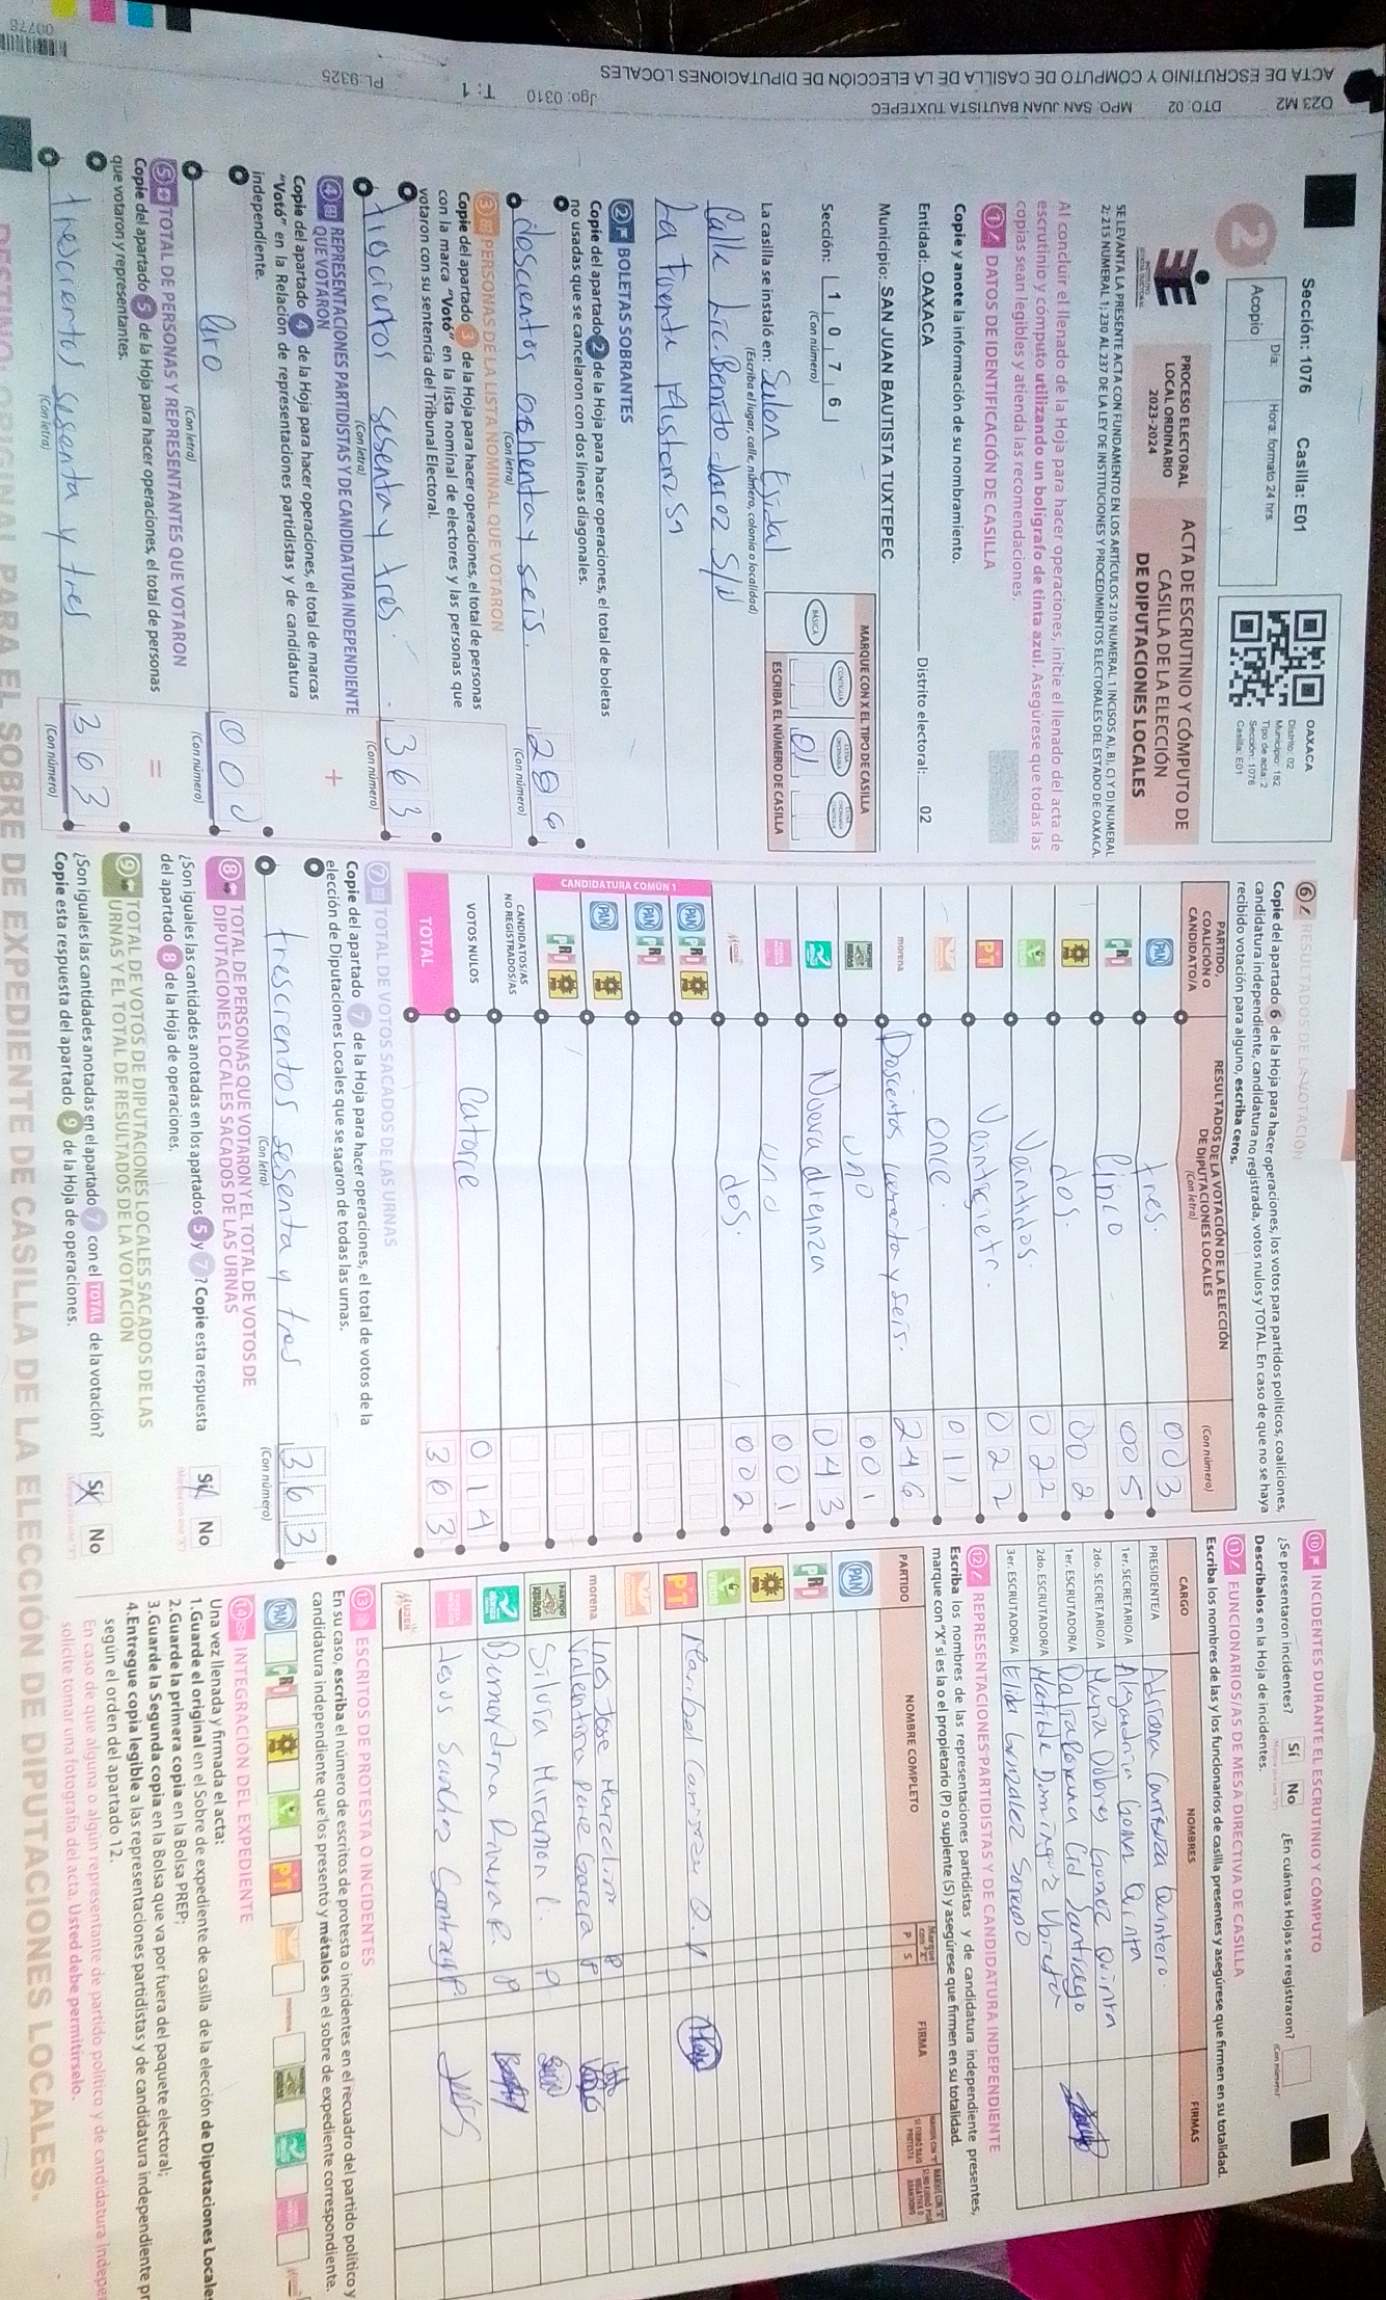 ACTA DE ESCRUTINIO Y CÓMPUTO DE CASILLA DE LA ELECCIÓN DE DIPUTACIONES LOCALES
O23 M2 DTO: 02 MPO: SAN JUAN BAUTISTA TUXTEPEC
Jgo: 0310 T: 1 PL: 9325
00778
Sección: 1076 Casilla: E01
2
Acopio
Día: Hora: formato 24 hrs
OAXACA
Distrito: 02
Municipio: 182
Tipo de acta: 2
Sección: 1076
Casilla: E01
PROCESO ELECTORAL
LOCAL ORDINARIO
2023-2024
ACTA DE ESCRUTINIO Y CÓMPUTO DE
CASILLA DE LA ELECCIÓN
DE DIPUTACIONES LOCALES
SE LEVANTA LA PRESENTE ACTA CON FUNDAMENTO EN LOS ARTÍCULOS 210 NUMERAL 1 INCISOS A), B), C) Y D) NUMERAL
2; 215 NUMERAL 1; 230 AL 237 DE LA LEY DE INSTITUCIONES Y PROCEDIMIENTOS ELECTORALES DEL ESTADO DE OAXACA.
Al concluir el llenado de la Hoja para hacer operaciones, inicie el llenado del acta de
escrutinio y cómputo utilizando un bolígrafo de tinta azul. Asegúrese que todas las
copias sean legibles y atienda las recomendaciones.
1 DATOS DE IDENTIFICACIÓN DE CASILLA
Copie y anote la información de su nombramiento.
Entidad: OAXACA Distrito electoral: 02
Municipio: SAN JUAN BAUTISTA TUXTEPEC
Sección: 1 0 7 6
(Con número)
MARQUE CON X EL TIPO DE CASILLA
BÁSICA CONTIGUA
01
ESCRIBA EL NÚMERO DE CASILLA
La casilla se instaló en: Salon Ejidal
(Escriba el lugar, calle, número, colonia o localidad)
Calle Lic. Benito Juarez S/N
La Fuente Misteriosa
2 BOLETAS SOBRANTES
Copie del apartado 2 de la Hoja para hacer operaciones, el total de boletas
no usadas que se cancelaron con dos líneas diagonales.
doscientos ochenta y seis. 286
(Con letra) (Con número)
3 PERSONAS DE LA LISTA NOMINAL QUE VOTARON
Copie del apartado 3 de la Hoja para hacer operaciones, el total de personas
con la marca "Votó" en la lista nominal de electores y las personas que
votaron con su sentencia del Tribunal Electoral.
trescientos sesenta y tres. 363
(Con letra) (Con número)
4 REPRESENTACIONES PARTIDISTAS Y DE CANDIDATURA INDEPENDIENTE
QUE VOTARON
Copie del apartado 4 de la Hoja para hacer operaciones, el total de marcas
"Votó" en la Relación de representaciones partidistas y de candidatura
independiente.
+
Cero 000
(Con letra) (Con número)
5 TOTAL DE PERSONAS Y REPRESENTANTES QUE VOTARON
Copie del apartado 5 de la Hoja para hacer operaciones, el total de personas
que votaron y representantes.
=
trescientos sesenta y tres 363
(Con letra) (Con número)
6 RESULTADOS DE LA VOTACIÓN
Copie del apartado 6 de la Hoja para hacer operaciones, los votos para partidos políticos, coaliciones,
candidatura independiente, candidatura no registrada, votos nulos y TOTAL. En caso de que no se haya
recibido votación para alguno, escriba ceros.
PARTIDO, COALICIÓN O CANDIDATO/A
RESULTADOS DE LA VOTACIÓN DE LA ELECCIÓN DE DIPUTACIONES LOCALES (Con letra)
(Con número)
PAN tres. 003
PRI Cinco 005
PRD dos. 002
VERDE Veintidos. 022
PT 022
once. 011
morena Doscientos cuarenta y seis. 246
uno 001
Nueva alianza 043
uno 001
dos. 002
CANDIDATURA COMÚN 1
PAN PRI PRD
PAN PRI
PAN PRD
PRI PRD
CANDIDATOS/AS NO REGISTRADOS/AS
VOTOS NULOS Catorce 014
TOTAL 363
7 TOTAL DE VOTOS SACADOS DE LAS URNAS
Copie del apartado 7 de la Hoja para hacer operaciones, el total de votos de la
elección de Diputaciones Locales que se sacaron de todas las urnas.
trescientos sesenta y tres 363
(Con letra) (Con número)
8 TOTAL DE PERSONAS QUE VOTARON Y EL TOTAL DE VOTOS DE
DIPUTACIONES LOCALES SACADOS DE LAS URNAS
¿Son iguales las cantidades anotadas en los apartados 5 y 7? Copie esta respuesta
del apartado 8 de la Hoja de operaciones.
Sí No
9 TOTAL DE VOTOS DE DIPUTACIONES LOCALES SACADOS DE LAS
URNAS Y EL TOTAL DE RESULTADOS DE LA VOTACIÓN
¿Son iguales las cantidades anotadas en el apartado 7 con el TOTAL de la votación?
Copie esta respuesta del apartado 9 de la Hoja de operaciones.
Sí No
10 INCIDENTES DURANTE EL ESCRUTINIO Y CÓMPUTO
¿Se presentaron incidentes? Sí No ¿En cuántas Hojas se registraron?
(Con número)
Descríbalos en la Hoja de incidentes.
11 FUNCIONARIOS/AS DE MESA DIRECTIVA DE CASILLA
Escriba los nombres de las y los funcionarios de casilla presentes y asegúrese que firmen en su totalidad.
CARGO NOMBRES FIRMAS
PRESIDENTE/A Adriana Carrera Quintero.
1er. SECRETARIO/A Alejandrina Gomez Quinta
2do. SECRETARIO/A Maria Dolores Gomez Quinta
1er. ESCRUTADOR/A Dalia Roxana Cid Santiago
2do. ESCRUTADOR/A Matilde Dominguez
3er. ESCRUTADOR/A Elida Gonzalez Soriano
12 REPRESENTACIONES PARTIDISTAS Y DE CANDIDATURA INDEPENDIENTE
Escriba los nombres de las representaciones partidistas y de candidatura independiente presentes,
marque con "X" si es la o el propietario (P) o suplente (S) y asegúrese que firmen en su totalidad.
PARTIDO NOMBRE COMPLETO P S FIRMA
PAN
PRI
PRD
VERDE Maribel Q.
PT
morena Ines Jose Marcelino P
Valentina Perez Garcia P
Silvia Miramon C. P
Rivera R. P
Jesus Sanchez P
13 ESCRITOS DE PROTESTA O INCIDENTES
En su caso, escriba el número de escritos de protesta o incidentes en el recuadro del partido político y
candidatura independiente que los presentó y métalos en el sobre de expediente correspondiente.
PAN PRI PRD PT morena
14 INTEGRACIÓN DEL EXPEDIENTE
Una vez llenada y firmada el acta:
1.Guarde el original en el Sobre de expediente de casilla de la elección de Diputaciones Locale
2.Guarde la primera copia en la Bolsa PREP;
3.Guarde la Segunda copia en la Bolsa que va por fuera del paquete electoral;
4.Entregue copia legible a las representaciones partidistas y de candidatura independiente pr
según el orden del apartado 12.
En caso de que alguna o algún representante de partido político y de candidatura indepe
solicite tomar una fotografía del acta, Usted debe permitírselo.
DESTINO: ORIGINAL PARA EL SOBRE DE EXPEDIENTE DE CASILLA DE LA ELECCIÓN DE DIPUTACIONES LOCALES.